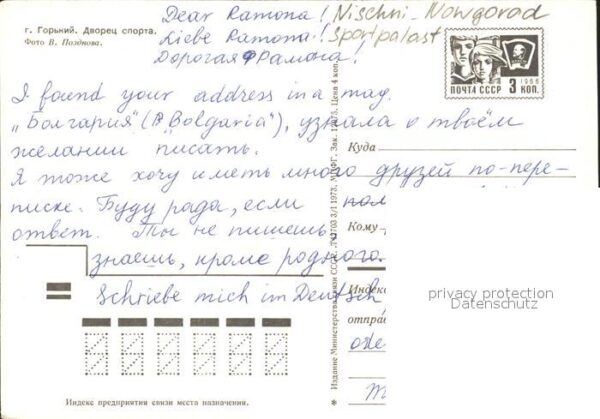 Dear Ramona! Nischni-Nowgorod
г. Горький. Дворец спорта. Liebe Ramona! Sportpalast
Фото В. Позднова. Дорогая Рамона!
ПОЧТА СССР 3 КОП.
1966
I found your address in a mag.
„Болгария" („Bolgaria"), узнала о твоём
желании писать.
Куда
Я тоже хочу иметь много друзей по-пере-
писке. Буду рада, если
ответ. Ты не пишешь,
Кому
знаешь, кроме родного.
Schriebe mich im Deutsch
Индекс
отправ
privacy protection
Datenschutz
Издание Министерства связи СССР. 3/I 1973. МПФГ. Зак. Цена 4 коп.
Индекс предприятия связи места назначения.